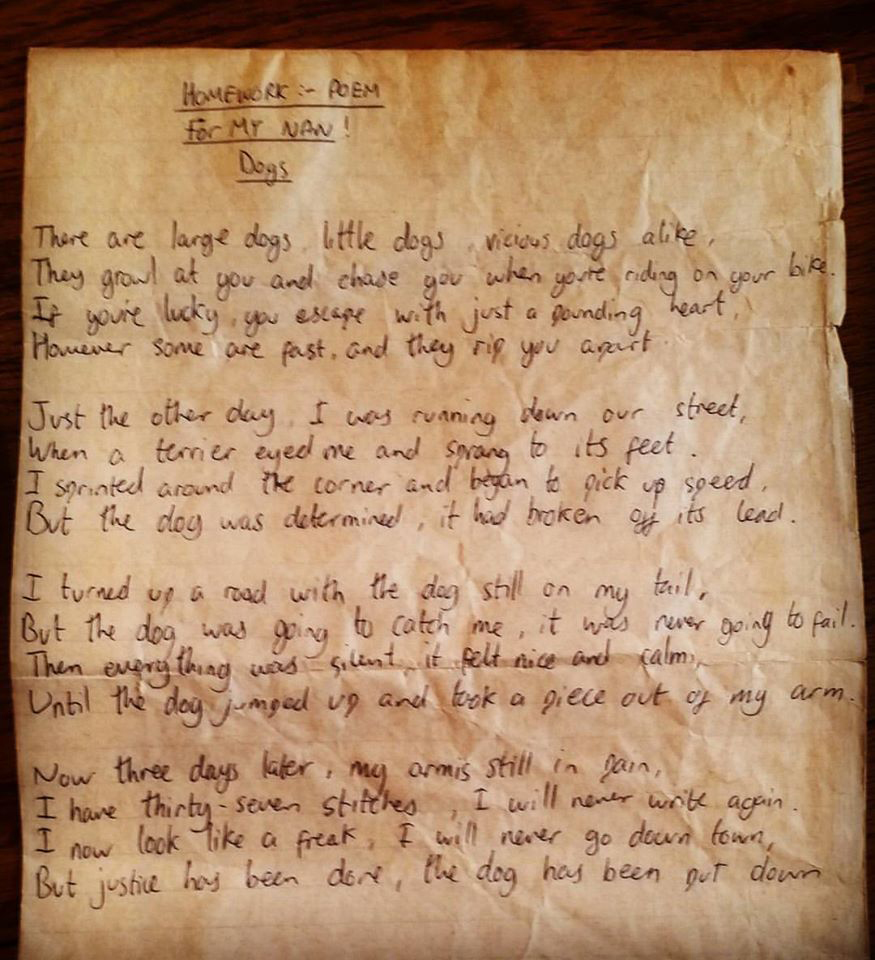 HOMEWORK :- POEM
For MY NAN!
Dogs
There are large dogs, little dogs, vicious dogs alike,
They growl at you and chase you when you're riding on your bike.
If you're lucky, you escape with just a pounding heart,
However some are fast, and they rip you apart.
Just the other day, I was running down our street,
When a terrier eyed me and sprang to its feet.
I sprinted around the corner and began to pick up speed,
But the dog was determined, it had broken off its lead.
I turned up a road with the dog still on my tail,
But the dog was going to catch me, it was never going to fail.
Then everything was silent, it felt nice and calm,
Until the dog jumped up and took a piece out of my arm.
Now three days later, my arm is still in pain,
I have thirty-seven stitches, I will never write again.
I now look like a freak, I will never go down town,
But justice has been done, the dog has been put down